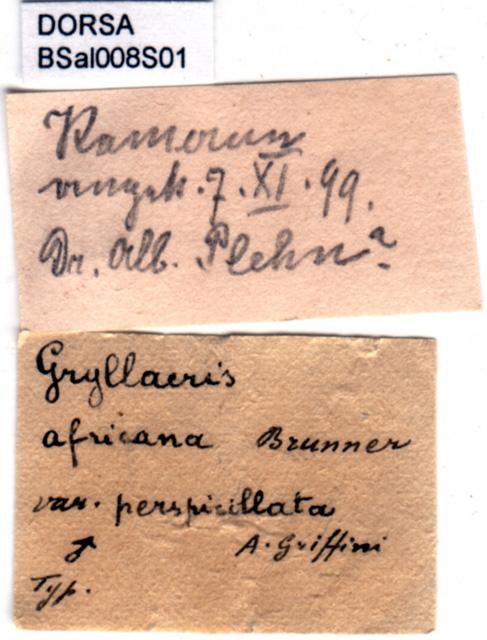 DORSA
BSal008S01
Kamerun
eingek. 7. XI. 99.
Dr. Alb. Plehn
Gryllacris
africana Brunner
var. perspicillata
♂ A. Griffini
Typ.